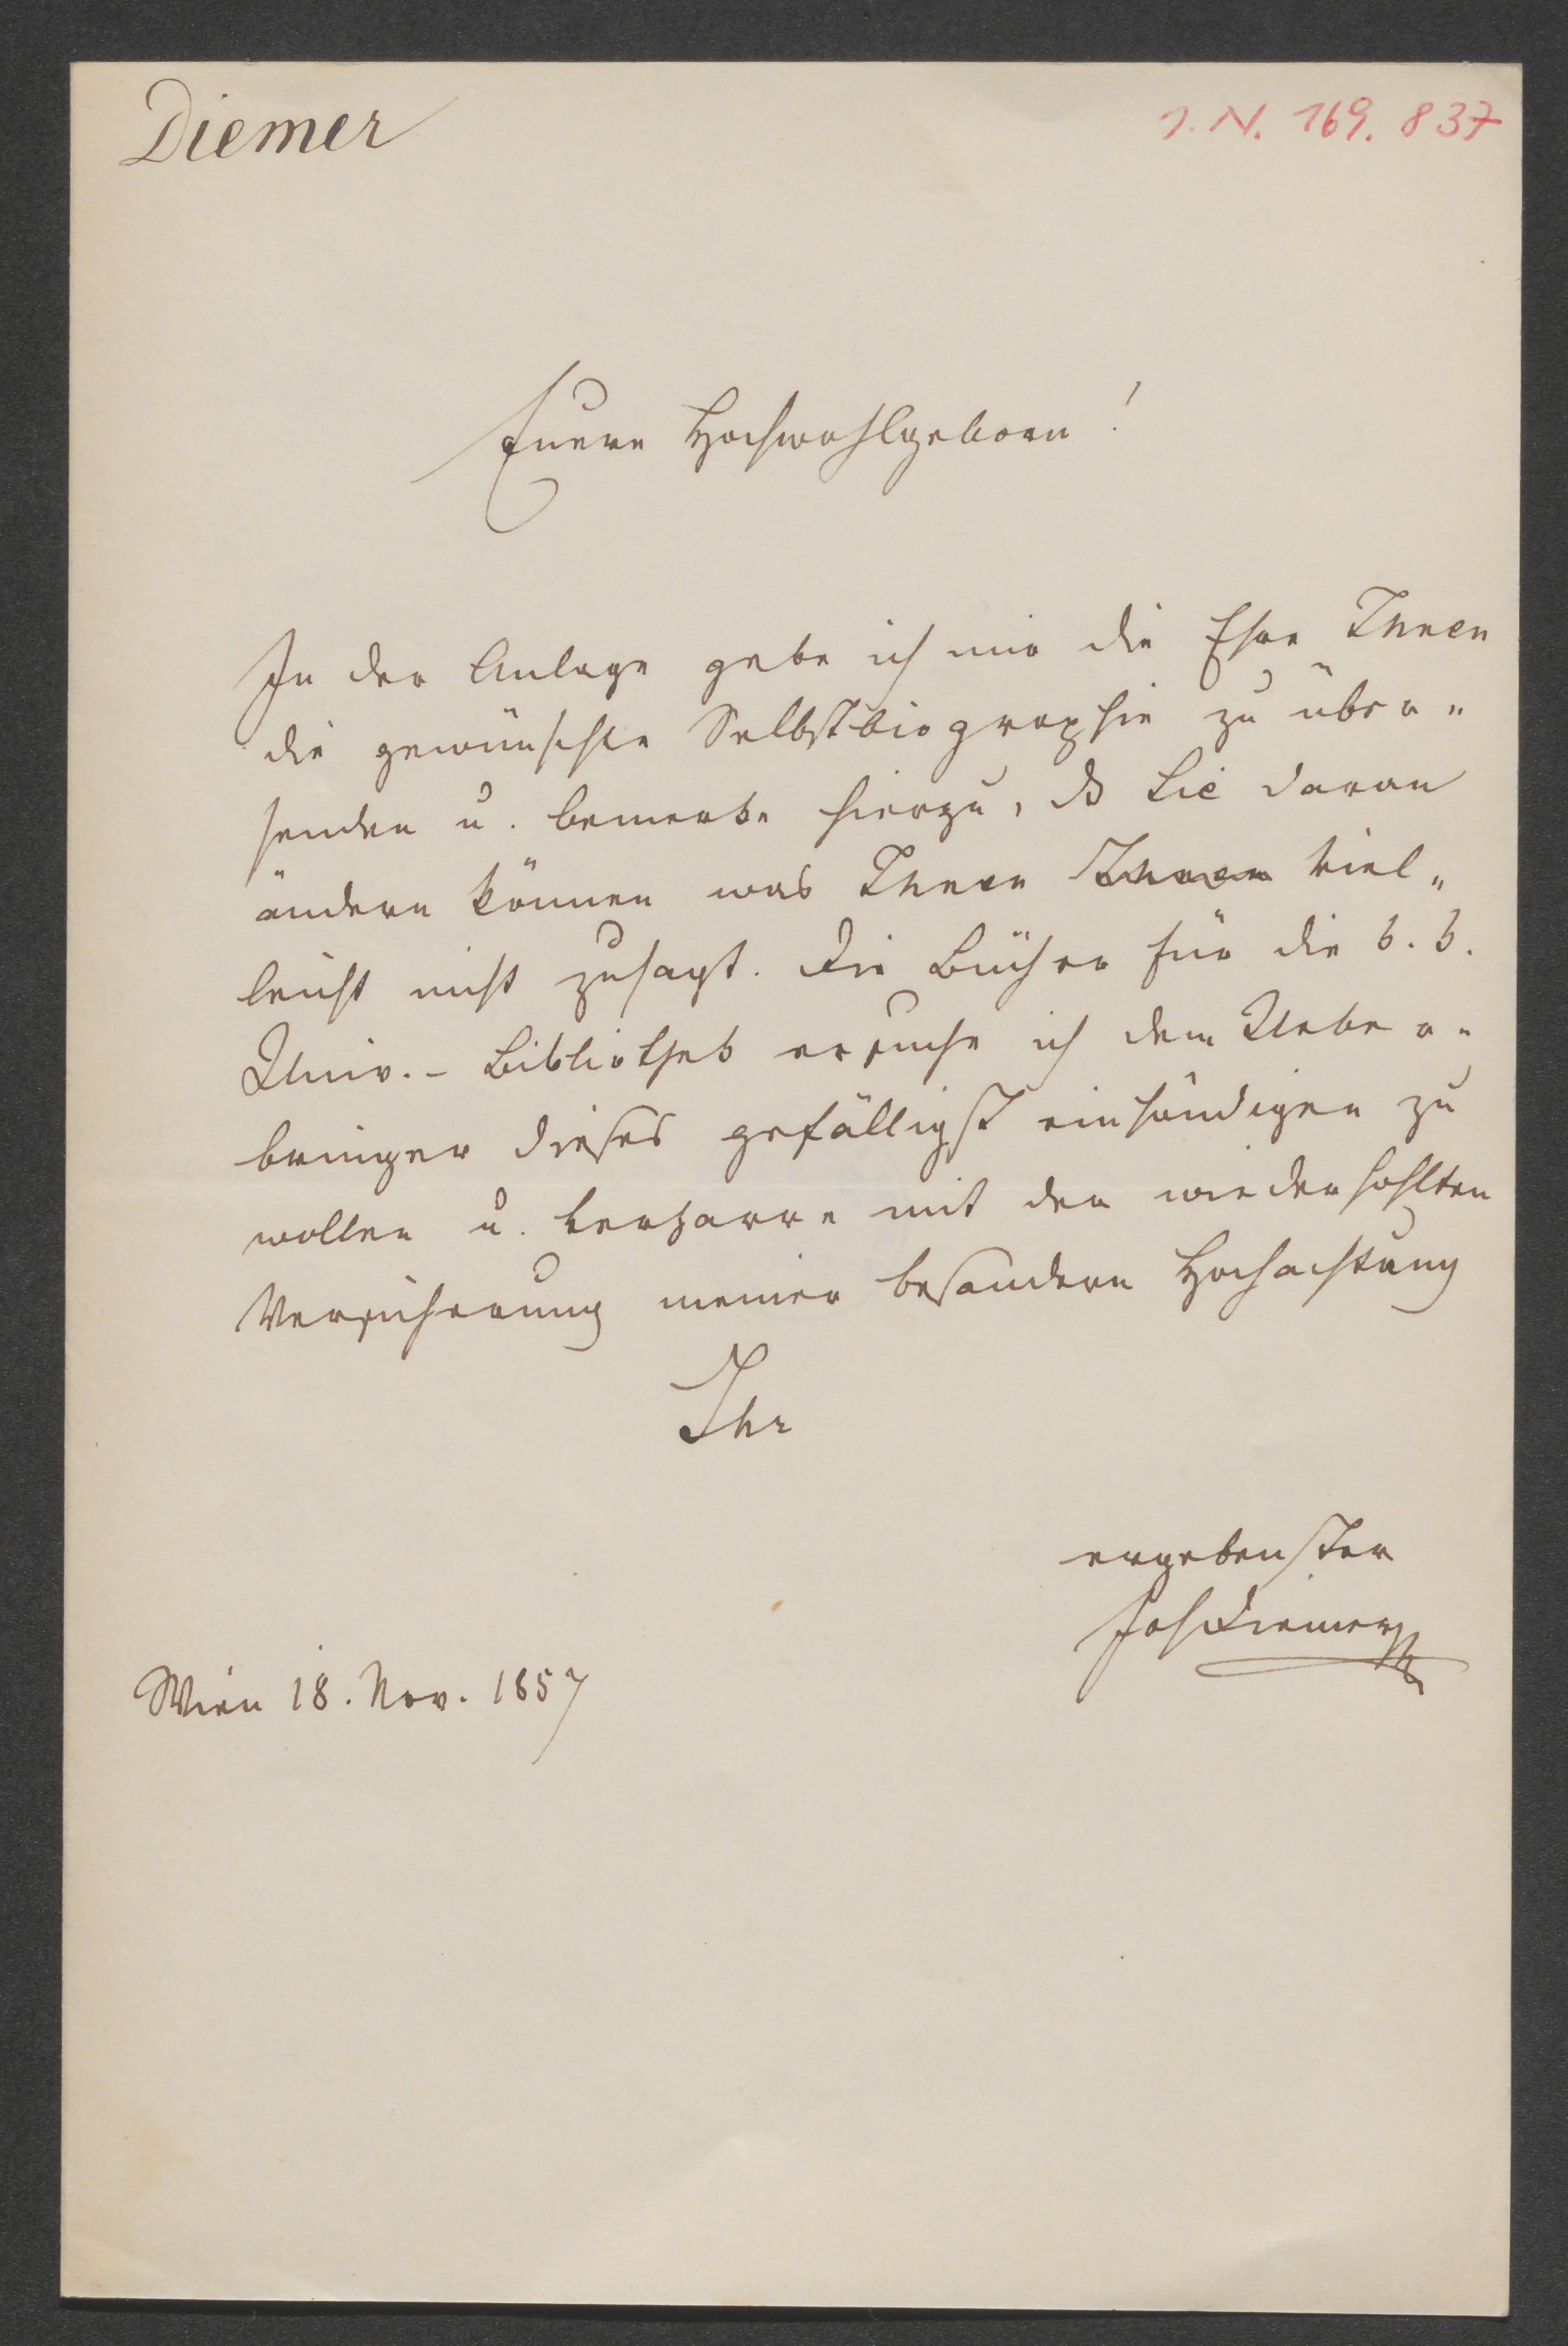 Diemer
I. N. 169.837
Euere Hochwohlgeborn!
In der Anlage gebe ich mir die Ehre Ihnen
die gewünschte Selbstbiographie zu über„
senden u. bemerke hierzu, dß Sie daran
ändern können was Ihnen Ihnen viel„
leicht nicht zusagt. Die Bücher für die k. k.
Univ.-Bibliothek ersuche ich dem Ueber„
bringer dieses gefälligst einhändigen zu
wollen u. verharre mit der wiederhohlten
Versicherung meiner besondern Hochachtung
Ihr
ergebenster
Jos Diemer
Wien 18. Nov. 1857